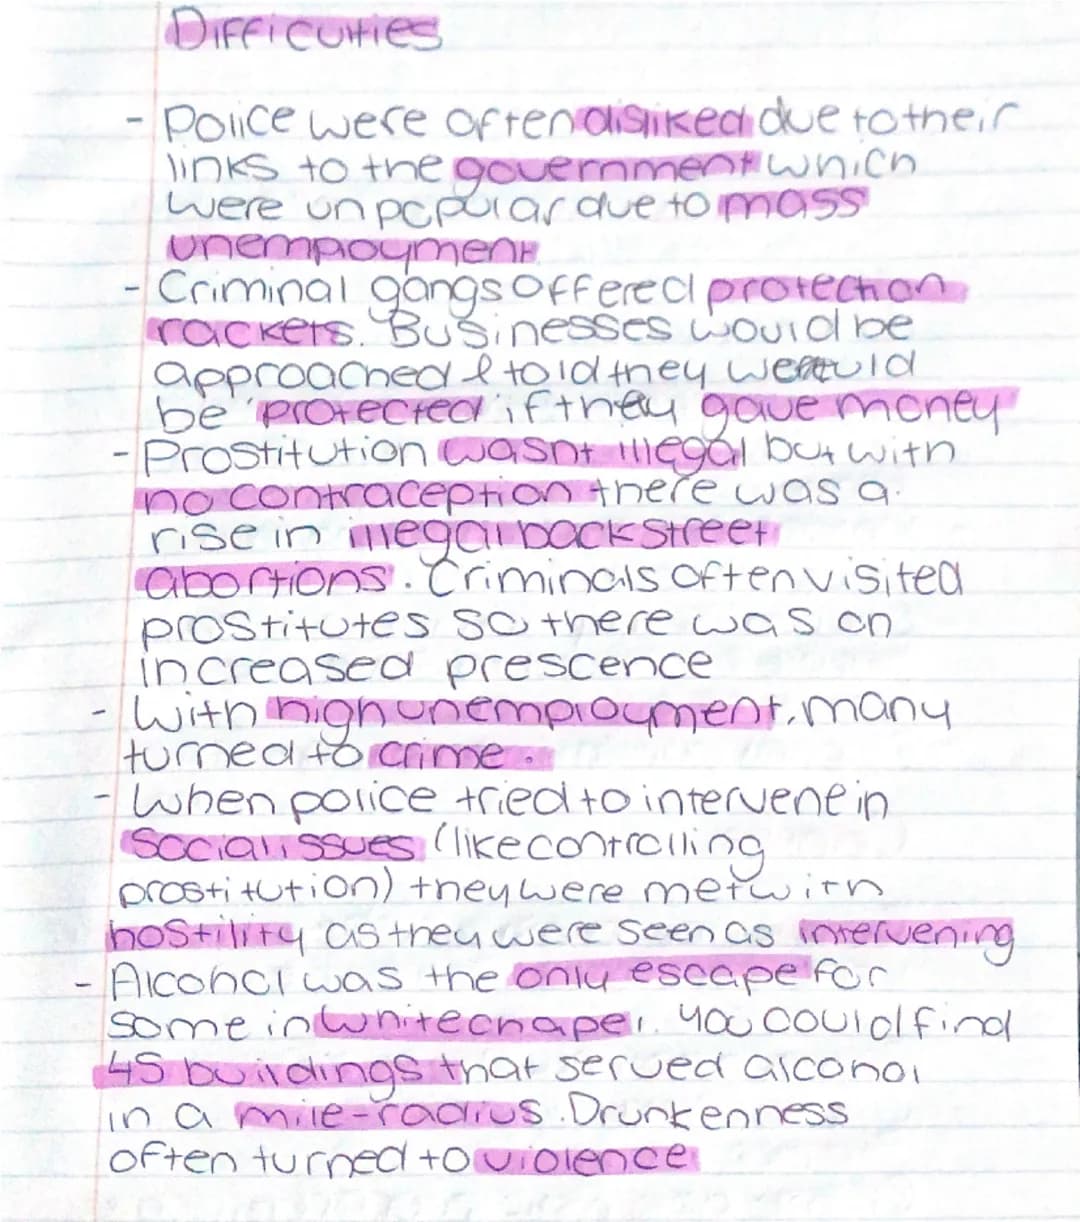 Difficulties
- Police were often disliked due to their
links to the government which
were unpopular due to mass
unempoyment
- Criminal gangs offered protection
rackets. Businesses would be
approached & told they would
be 'protected' if they gave money
- Prostitution wasnt illegal but with
no contraception there was a
rise in illegal backstreet
abortions. Criminals often visited
prostitutes so there was an
increased prescence
- With high unemployment, many
turned to crime.
- When police tried to intervene in
social issues (like controlling
prostitution) they were met with
hostility as they were seen as intervening
- Alcohol was the only escape for
some in Whitechapel. You could find
45 buildings that served alcohol
in a mile-radius. Drunkenness
often turned to violence